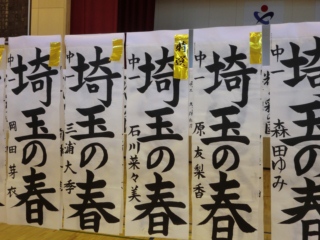 埼玉の春
中一 岡田芽衣
埼玉の春
中一 三浦大季
特選
埼玉の春
中一 石川菜々美
埼玉の春
中一 原友梨香
埼玉の春
中一 森田ゆみ